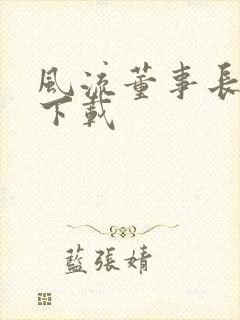 風流董事長
下載
藍張婧